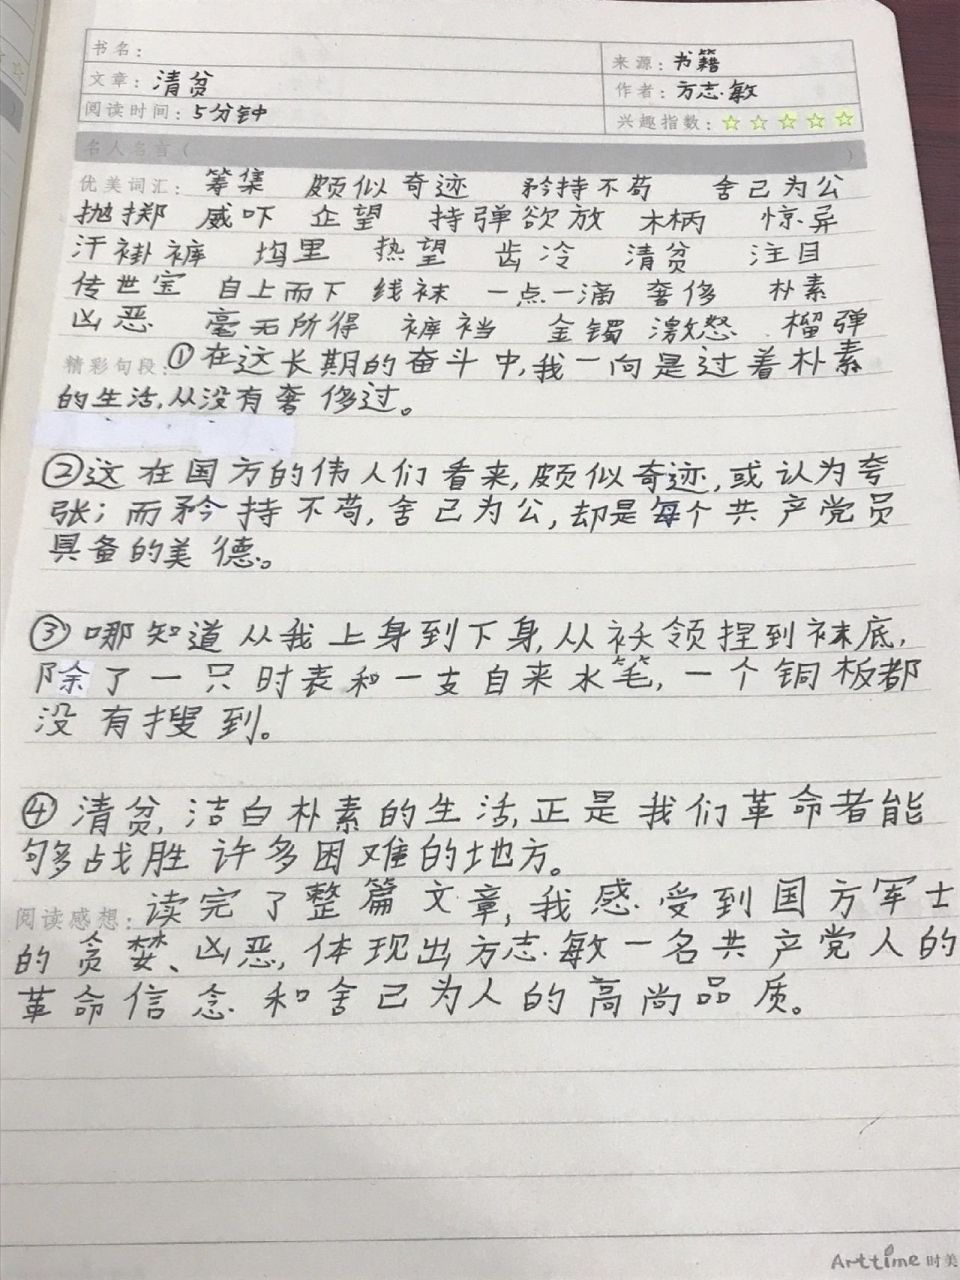 书名:
来源: 书籍
文章: 清贫
作者: 方志敏
阅读时间: 5分钟
兴趣指数: ☆☆☆☆☆
名人名言( )
优美词汇: 筹集 颇似奇迹 矜持不苟 舍己为公
抛掷 威吓 企望 持弹欲放 木柄 惊异
汗褂裤 坞里 热望 齿冷 清贫 注目
传世宝 自上而下 线袜 一点一滴 奢侈 朴素
凶恶 毫无所得 裤裆 金镯 激怒 榴弹
精彩句段: ①在这长期的奋斗中,我一向是过着朴素
的生活,从没有奢侈过。
②这在国方的伟人们看来,颇似奇迹,或认为夸
张;而矜持不苟,舍己为公,却是每个共产党员
具备的美德。
③哪知道从我上身到下身,从袄领捏到袜底,
除了一只时表和一支自来水笔,一个铜板都
没有搜到。
④清贫,洁白朴素的生活,正是我们革命者能
够多战胜许多困难的地方。
阅读感想: 读完了整篇文章,我感受到国方军士
的贪婪、凶恶,体现出方志敏一名共产党人的
革命信念和舍己为人的高尚品质。
Arttime 时美